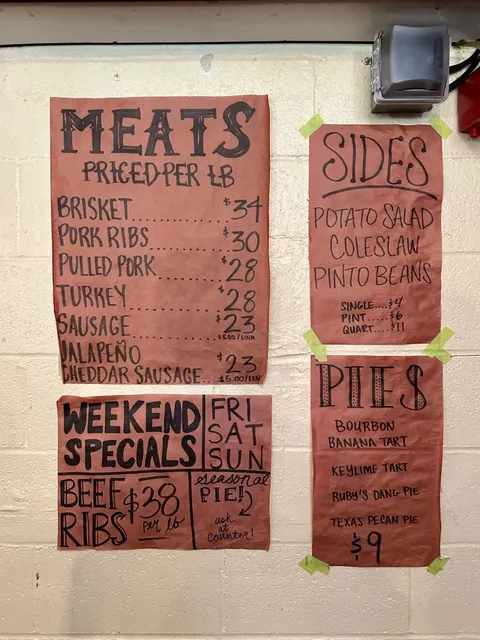 MEATS
PRICED PER LB
BRISKET........... $34
PORK RIBS........... $30
PULLED PORK........... $28
TURKEY........... $28
SAUSAGE........... $23
$5.00/LINK
JALAPEÑO
CHEDDAR SAUSAGE... $23
$5.00/LINK
WEEKEND
SPECIALS
FRI
SAT
SUN
BEEF
RIBS
$38
per lb
seasonal
PIE!
ask
at
counter!
SIDES
POTATO SALAD
COLESLAW
PINTO BEANS
SINGLE....$4
PINT.....$6
QUART....$11
PIES
BOURBON
BANANA TART
KEYLIME TART
RUBY'S DANG PIE
TEXAS PECAN PIE
$9